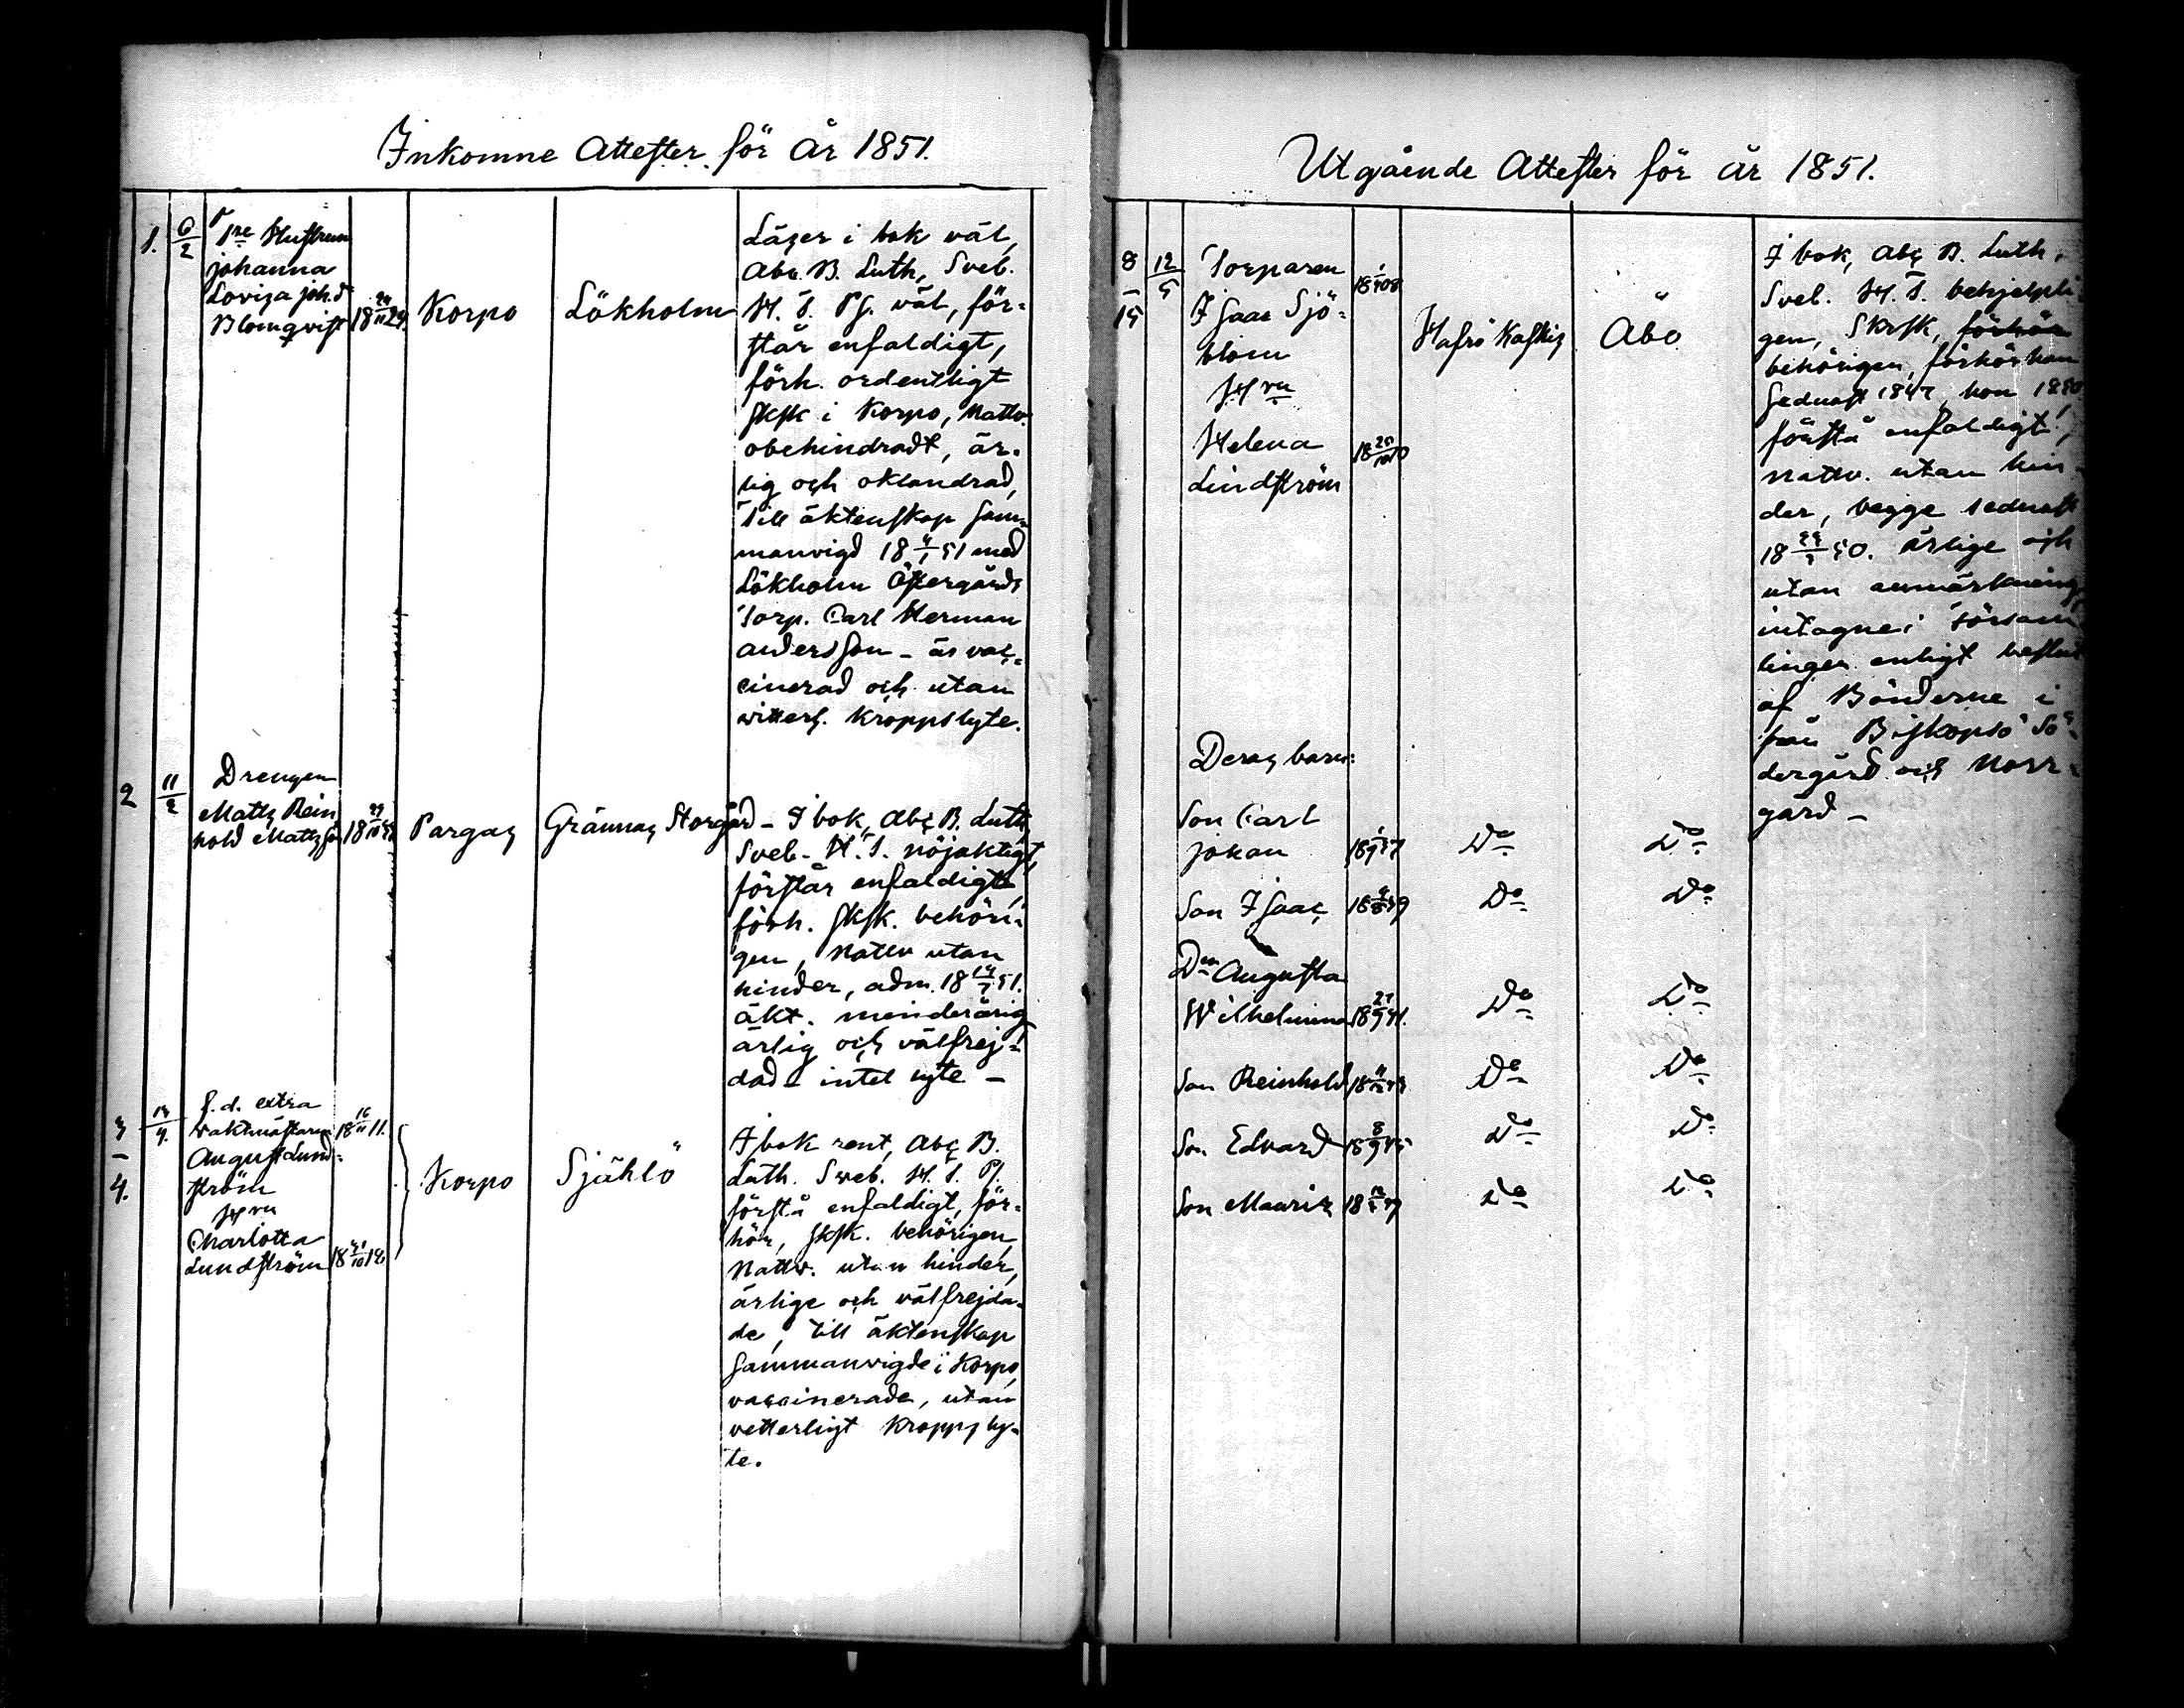 Inkomne Attester för År 1851.
1. 6/2 Tre Hustrun
Johanna
Loviza Joh.d
Blomqvist
Korpo
Lökholm
Läser i bok väl,
Abc. B. Luth, Sveb.
H. T. Ps. väl, för-
står enfaldigt,
förh. ordentligt
sksk i Korpo, Nattv.
obehindradt, är-
lig och oklandrad,
Till äktenskap sam-
manvigd 18 4/1 51 med
Lökholm Östergårds
Torp. Carl Herman
Andersson - är vac-
cinerad och utan
witterl. kroppslyte.
2 11/2 Drengen
Matts Rein
hold Mattsson
Pargas
Grännas Storgård
- I bok, Abc B. Luth,
Sveb. H. T. nöjaktigt,
förstår enfaldigt,
förh. sksk. behöri-
gen, Nattv utan
hinder, adm. 18 51.
äkt. minderårig
ärlig och välfrej-
dad - intet lyte -
3 - 4. f.d. extra
vaktmästaren
August Lund-
ström
Hru
Charlotta
Lundström
Korpo
Själö
I bok rent, Abc B.
Luth. Sveb. H. T. Ps.
förstå enfaldigt, för-
hör, sksk. behörigen,
Nattv. utan hinder,
ärlige och välfrejda-
de, till äktenskap
sammanvigde i Korpo,
vaccinerade, utan
vetterligt kroppsly-
te.
Utgående Attester för år 1851.
8 - 15 12/5 Torparen
Isaac Sjö-
blom
Hru
Helena
Lindström
Åbo
I bok, Abc B. Luth,
Sveb. H. T. behjelpli-
gen, Skrsk, förhör
behörigen, förhör han
sednast 1847, hon 1850
förstå enfaldigt,
nattv. utan hin-
der, begge sednast
18 50. ärlige och
utan anmärkning,
intagne i församlingen
enligt beslut
af Bönderne i
från Biskopsö Sö-
dergård och Norr-
gård -
Deras barn:
Son Carl
Johan
Do
Do
Son Isaac
Do
Do
Drn Augusta
Wilhelmina
Do
Do
Son Reinhold
Do
Do
Son Edvard
Do
Do
Son Mauritz
Do
Do